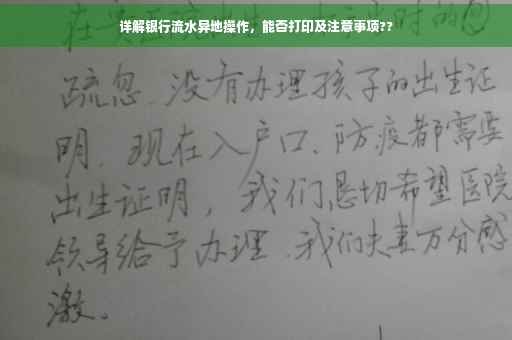 详解银行流水异地操作，能否打印及注意事项??
疏忽、没有办理孩子的出生证
明、现在入户口、防疫都需要
出生证明，我们恳切希望医院
领导给予办理、我们夫妻万分感
激。